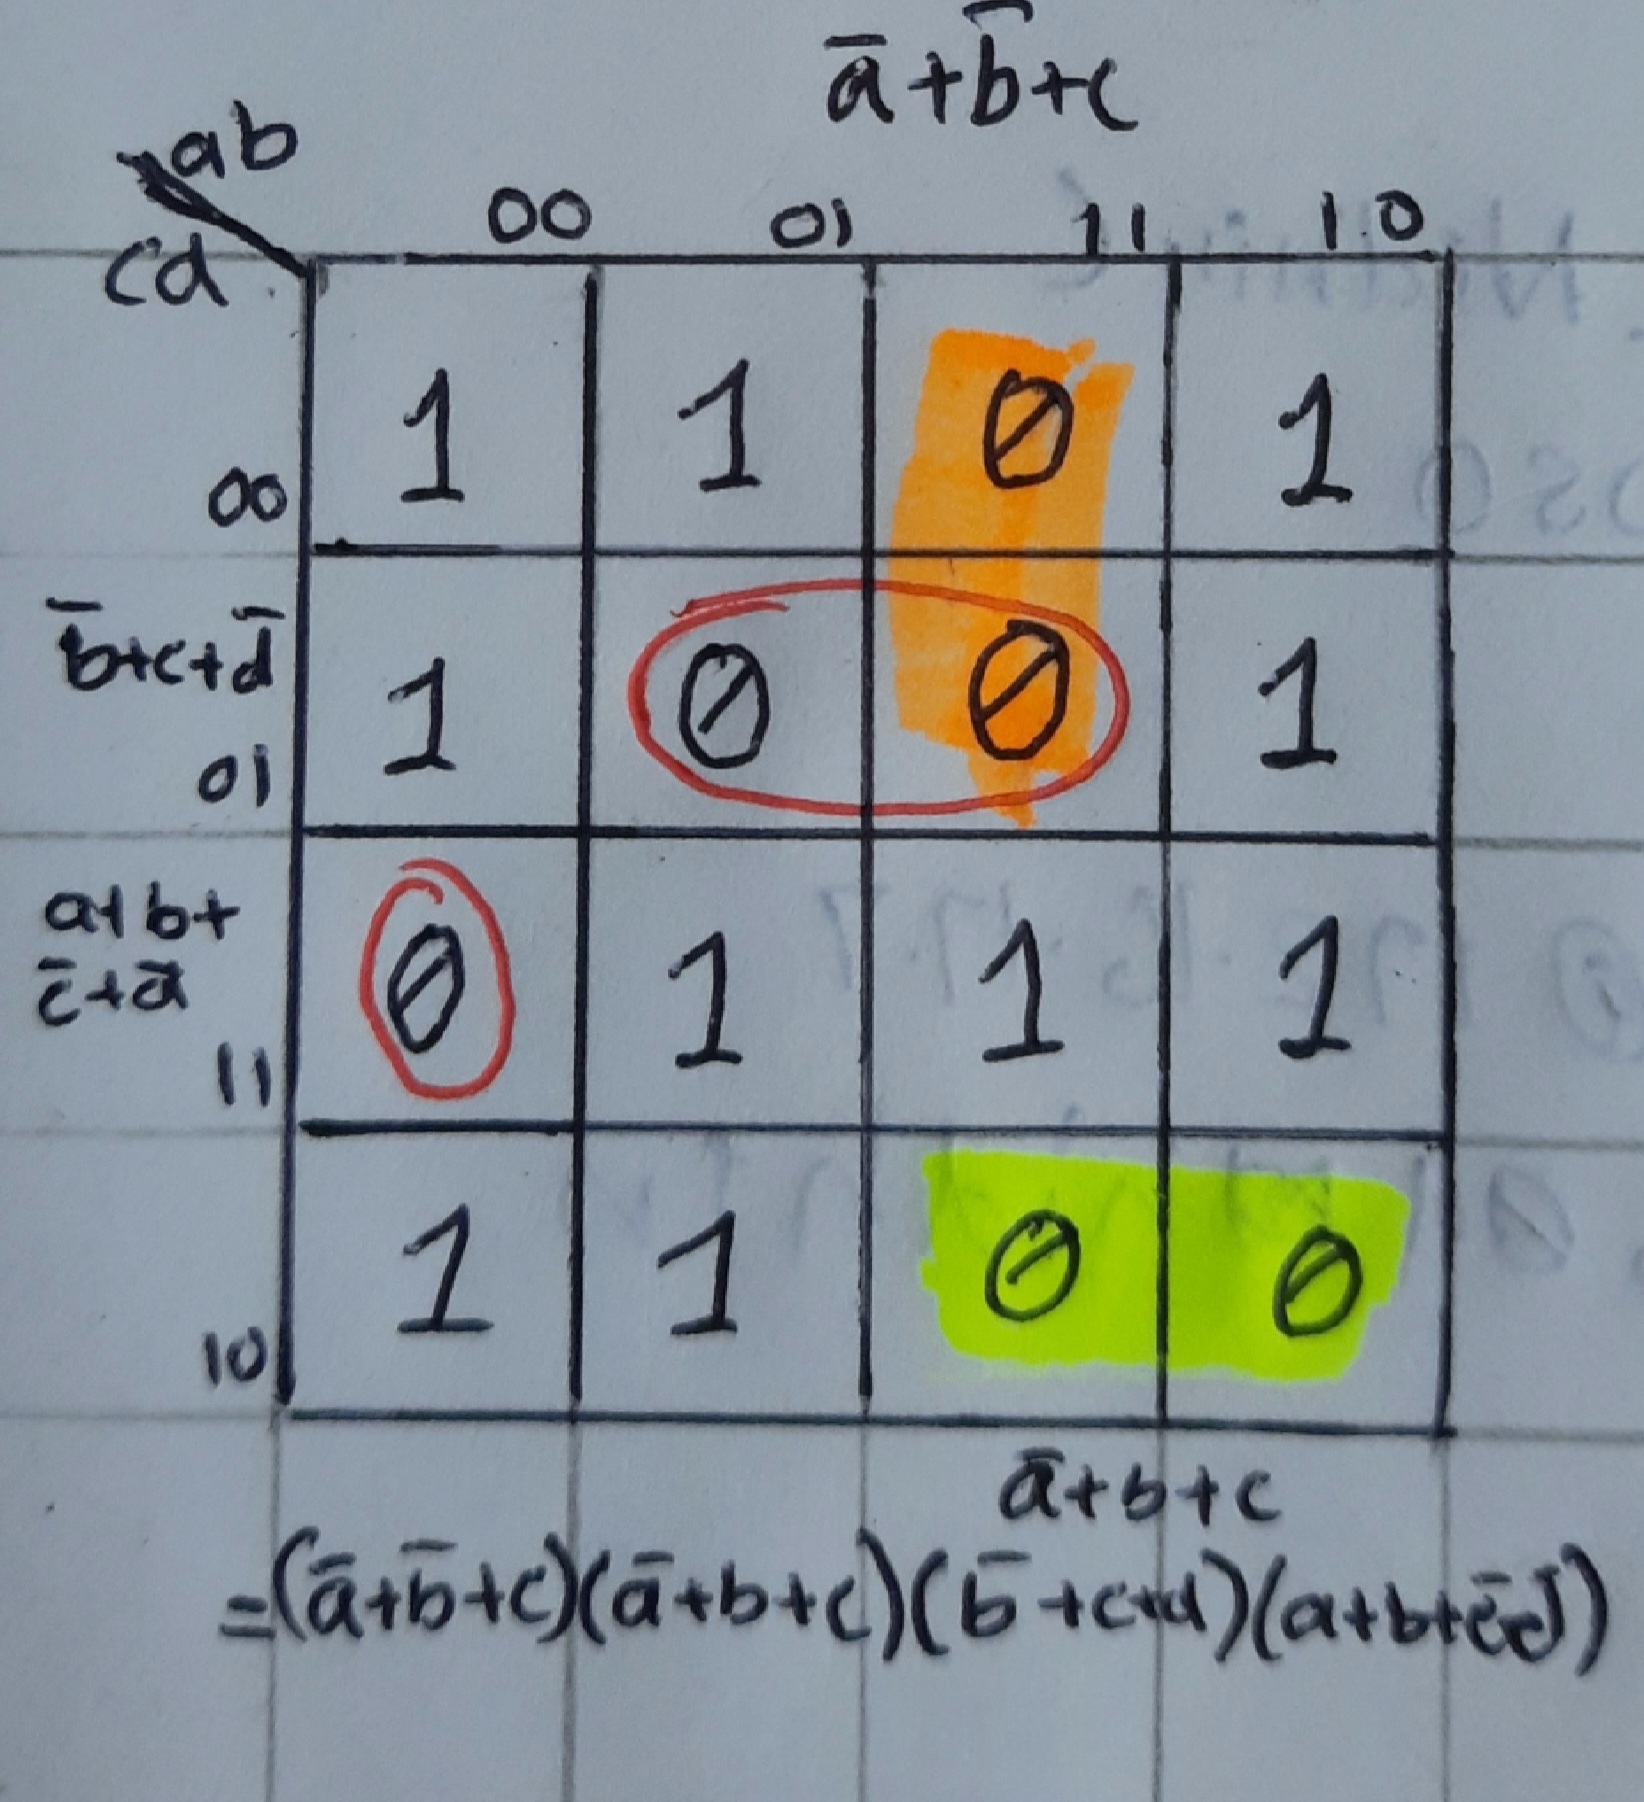 a̅+b̅+c
ab
cd
00 01 11 10
1 1 0 1
00
b̅+c+d̅
1 0 0 1
01
a+b+
c̅+d̅
0 1 1 1
11
1 1 0 0
10
a̅+b+c
=(a̅+b̅+c)(a̅+b+c)(b̅+c+d)(a+b+c̅+d̅)